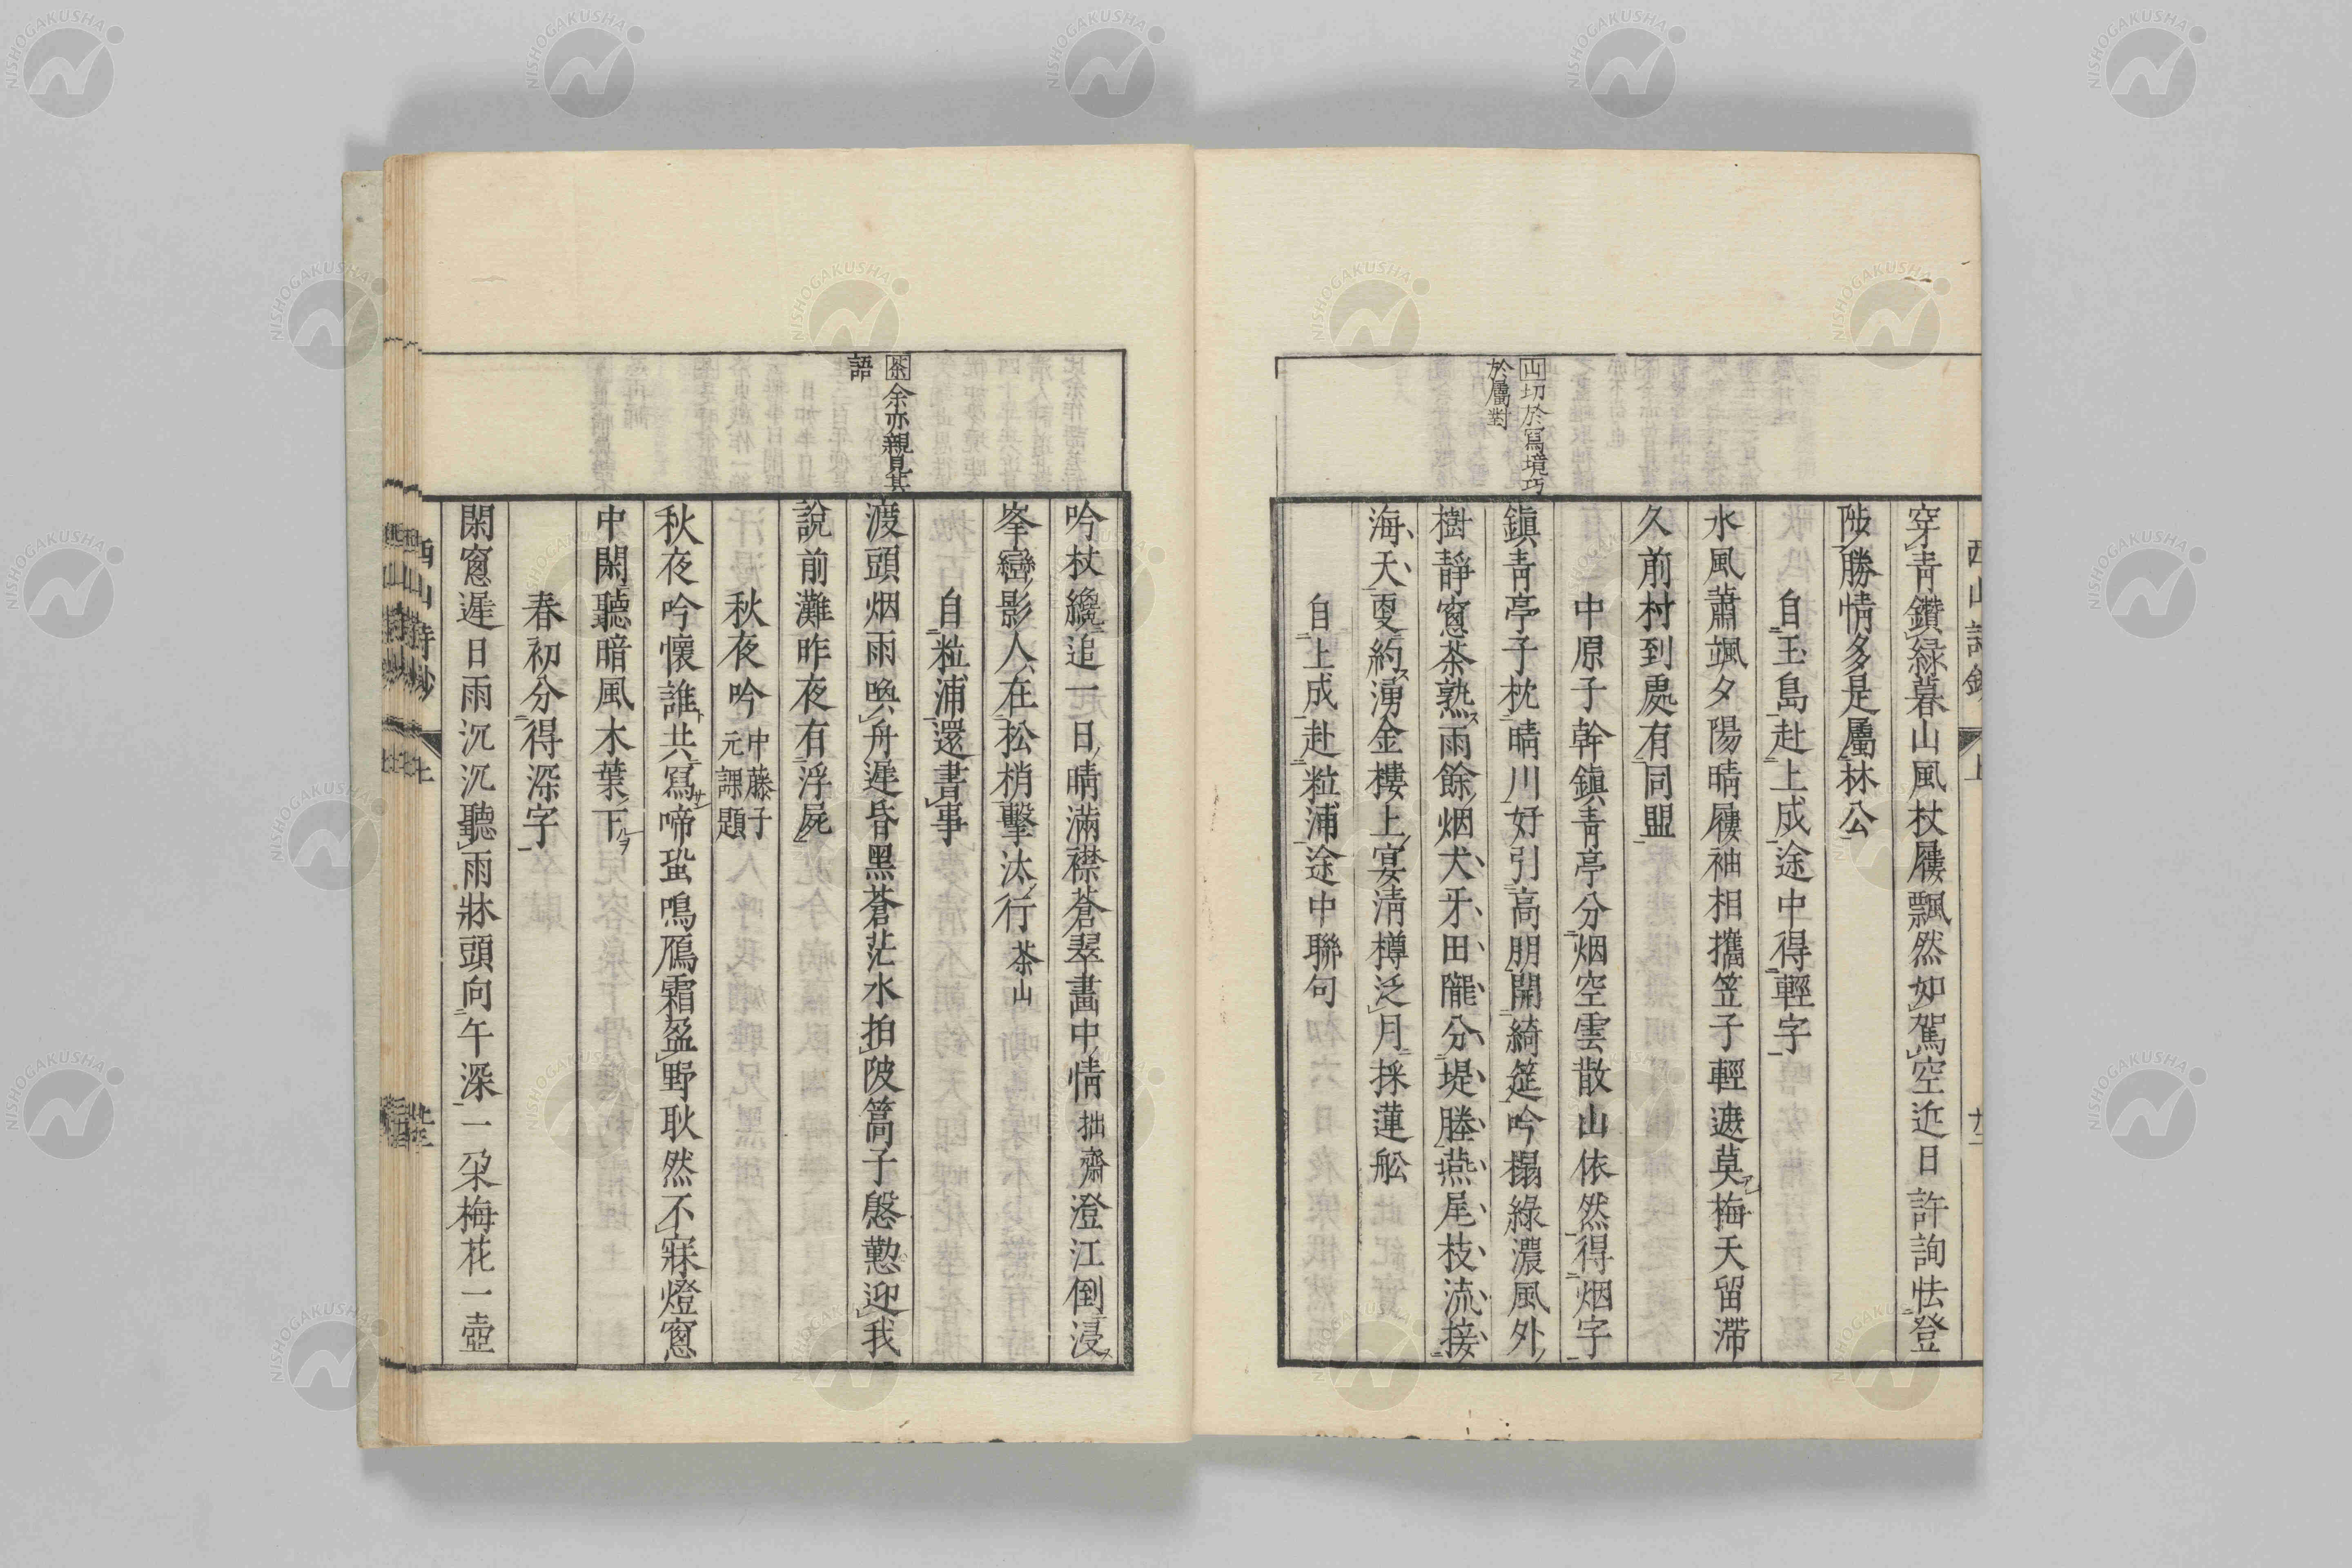 穿青鑚緑暮山風杖屨飄然如駕空近日許詢怯登
陟勝情多是屬林公
自玉島赴上成途中得輕字
水風蕭颯夕陽晴屨袖相攜笠子輕遮莫梅天留滯
久前村到處有同盟
中原子幹鎭靑亭分烟空雲散山依然得烟字
鎭靑亭子枕晴川好引高朋開綺筵吟榻綠濃風外
樹靜窻茶熟雨餘烟犬牙田隴分堤塍燕尾枝流接
海天更約湧金樓上宴淸樽泛月採蓮舩
自上成赴粒浦途中聯句
切於寫境巧
於屬對
吟杖纔追一日晴滿襟蒼翠畫中情拙齋澄江倒浸
峯巒影人在松梢擊汰行茶山
自粒浦還書事
渡頭烟雨喚舟遲昏黑蒼茫水拍陂篙子慇懃迎我
說前灘昨夜有浮屍
茶余亦親見其
語
秋夜吟中藤子
元課題
秋夜吟懷誰共寫啼蛩鳴鴈霜盈野耿然不寐燈窻
中閑聽暗風木葉下
春初分得深字
閑窻遲日雨沉沉聽雨牀頭向午深一朶梅花一壺
西山詩鈔
上